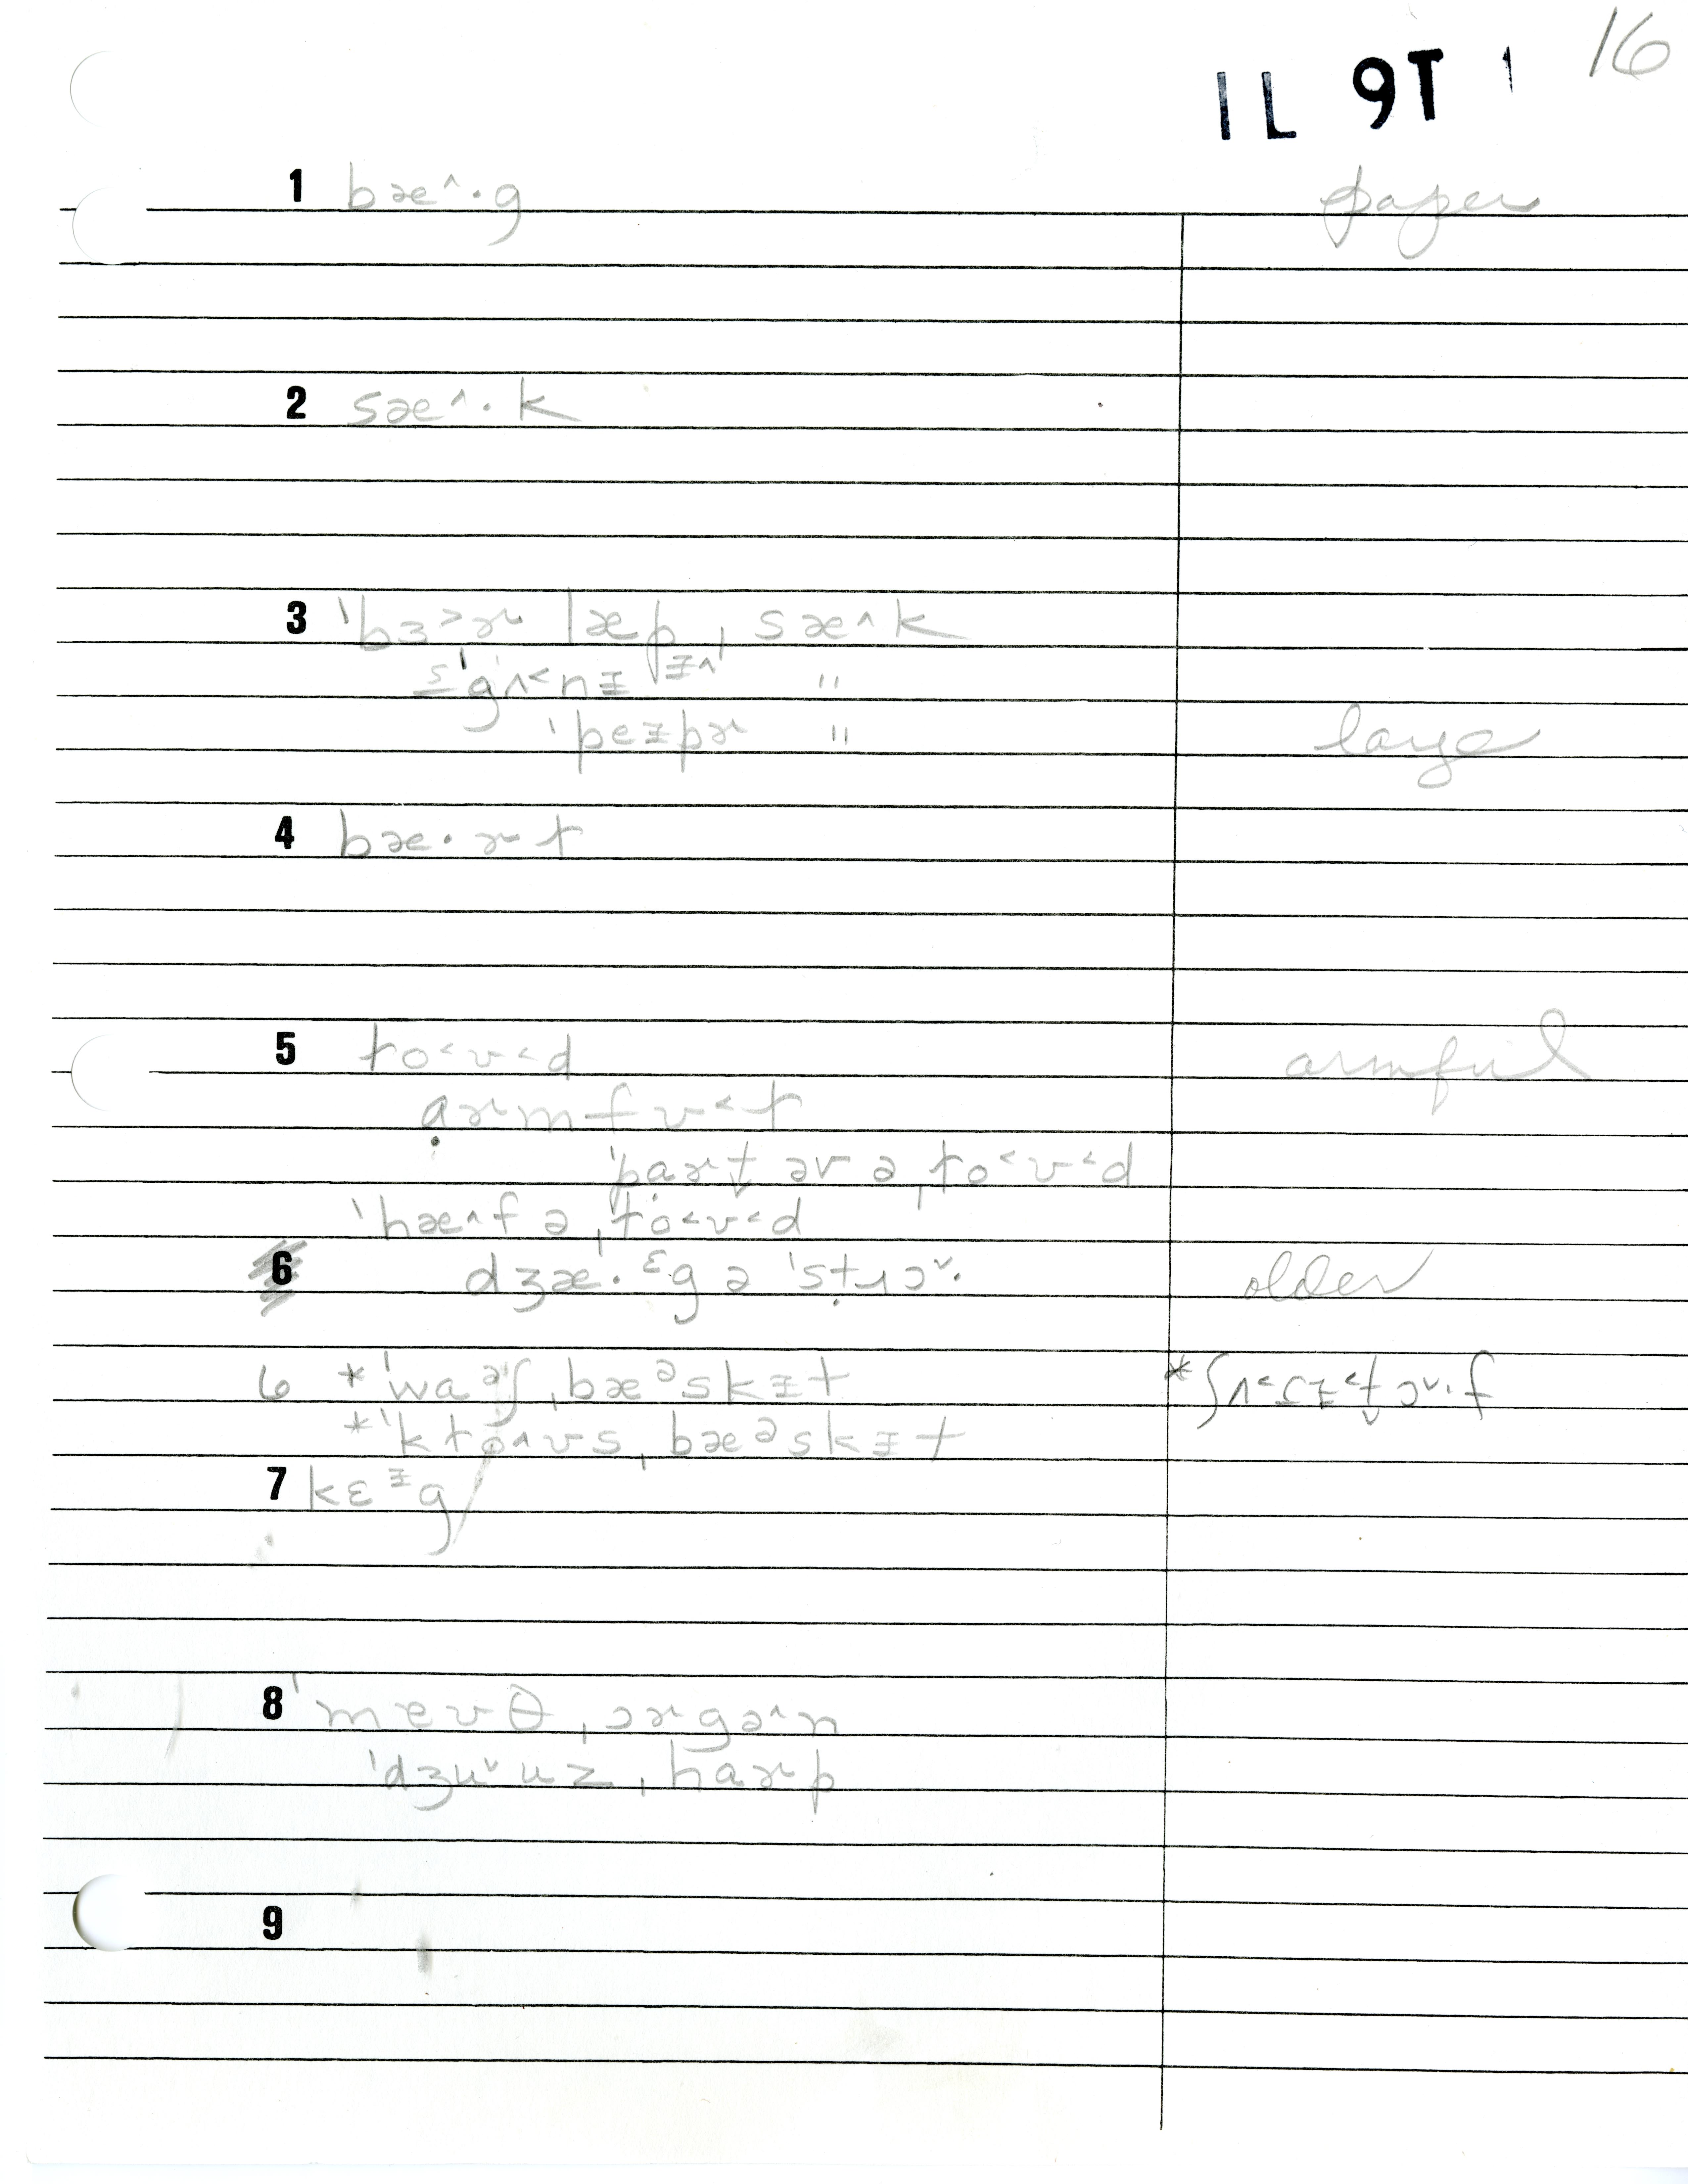 16
IL 9T 1
1 bæ^·g paper
2 sæ^·k
3 ˈbɜ˃ɚ læp ˌsæ^k
ˈgʌ˂nɪ "
ˈpeɪpɚ " large
4 bæ·ɚt
5 ɫo˂ʊ˂d armful
aɚmfʊ˂ɫ
ˈpaɚt əv ə ˌɫo˂ʊ˂d
ˈhæ^f ə ˌɫo˂ʊ˂d
6 dʒæ·ᵋg ə ˈstɹɔˇ· older
6 *ˈwaᵊʃ ˌbæᵊskɪt
*ˈkɫo^ʊs ˌbæᵊskɪt
7 kɛᶦg
8 ˈmaʊθ ˌɔɚgə^n
ˈdʒuˇuz ˌhaɚp
9